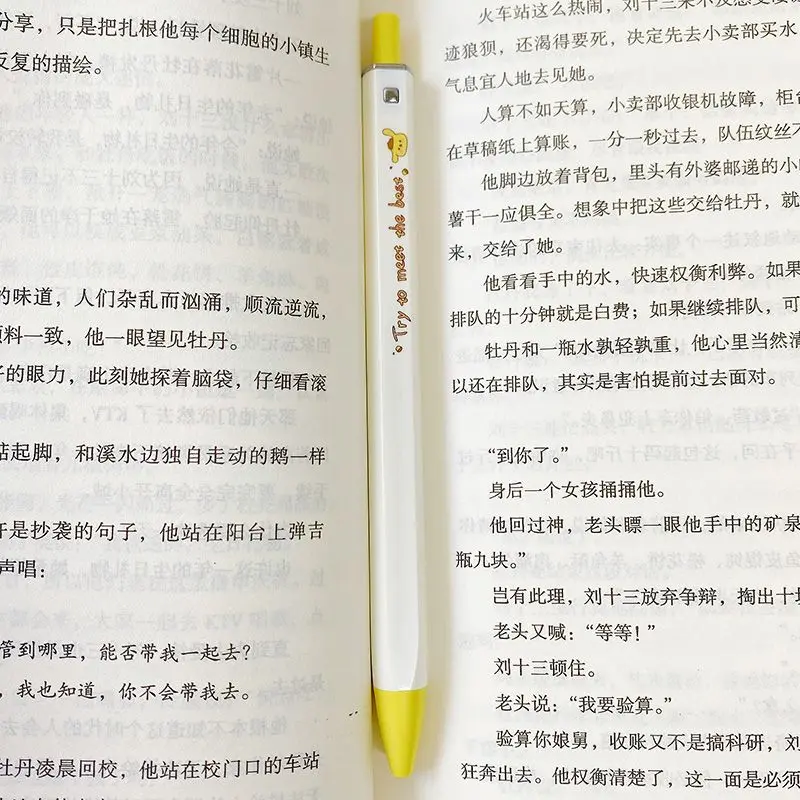 分享，只是把扎根他每个细胞的小镇生
反复的描绘。
的味道，人们杂乱而汹涌，顺流逆流，
颜料一致，他一眼望见牡丹。
子的眼力，此刻她探着脑袋，仔细看滚
踮起脚，和溪水边独自走动的鹅一样
许是抄袭的句子，他站在阳台上弹吉
声唱：
管到哪里，能否带我一起去？
，我也知道，你不会带我去。
牡丹凌晨回校，他站在校门口的车站
Try to meet the best
火车站这么热闹，刘十三来不及感受
迹狼狈，还渴得要死，决定先去小卖部买水
气息宜人地去见她。
人算不如天算，小卖部收银机故障，柜台
在草稿纸上算账，一分一秒过去，队伍纹丝不
他脚边放着背包，里头有外婆邮递的小
薯干一应俱全。想象中把这些交给牡丹，就
来，交给了她。
他看看手中的水，快速权衡利弊。如果
排队的十分钟就是白费；如果继续排队，可
牡丹和一瓶水孰轻孰重，他心里当然清
以还在排队，其实是害怕提前过去面对。
“到你了。”
身后一个女孩捅捅他。
他回过神，老头瞟一眼他手中的矿泉
瓶九块。”
岂有此理，刘十三放弃争辩，掏出十块
老头又喊：“等等！”
刘十三顿住。
老头说：“我要验算。”
验算你娘舅，收账又不是搞科研，刘
狂奔出去。他权衡清楚了，这一面是必须